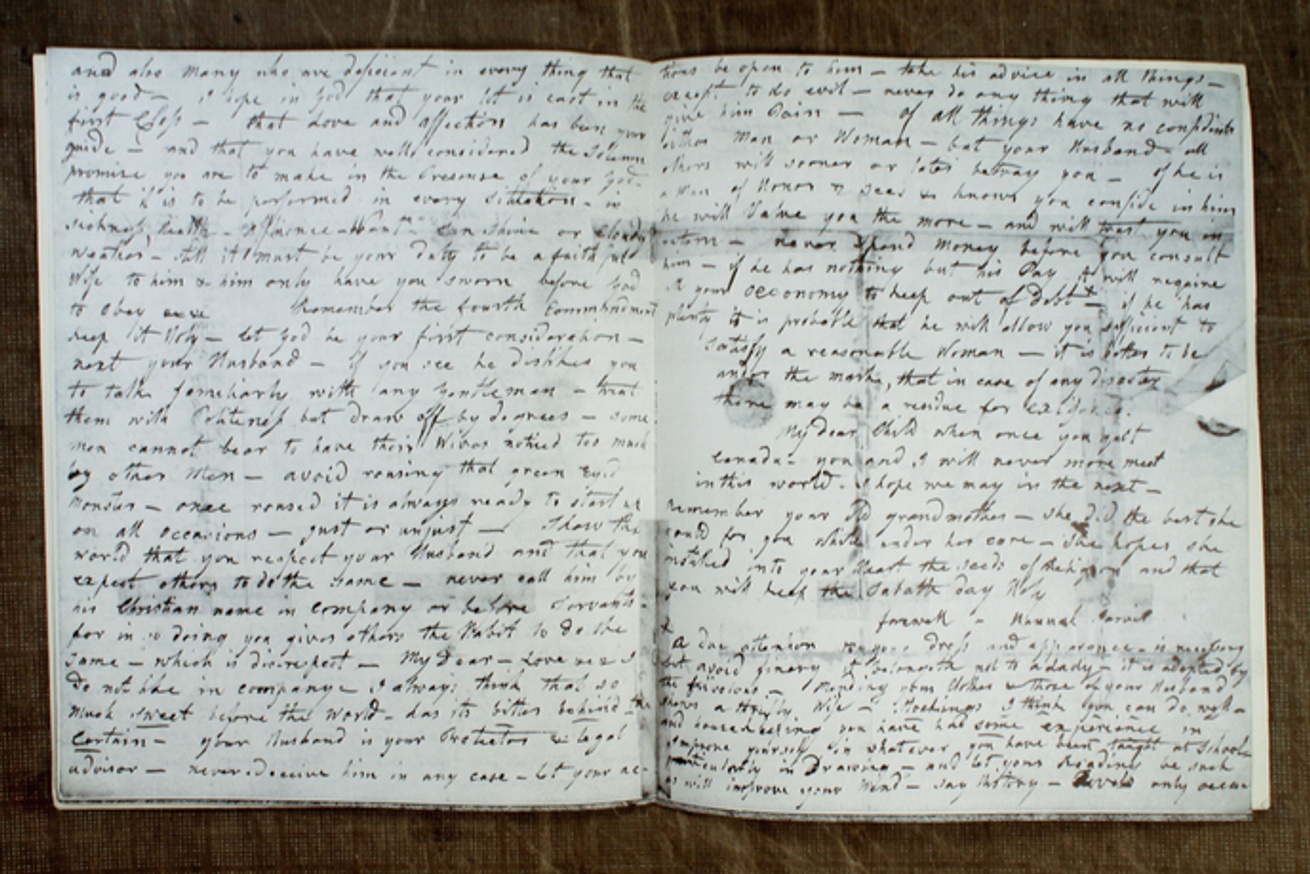 and also many who are deficient in every thing that
is good – I hope in God that your lot is cast in the
first Class – that Love and affection has been your
guide – and that you have well considered the Solemn
promise you are to make in the Presense of your God –
that it is to be performed in every situation – in
sickness, health – Affluence – Want – Sun Shine or Cloudy
weather – still it must be your duty to be a faithful
Wife to him & him only have you sworn before God
to obey Remember the fourth Commandment
keep it Holy – let God be your first consideration –
next your Husband – if you see he dislikes you
to talk familiarly with any Gentleman – treat
them with Politeness but draw off by degrees – some
men cannot bear to have their Wives noticed too much
by other Men – avoid rousing that green Eyed
Monster – once roused it is always ready to start up
on all occasions – just or unjust – Show the
world that you respect your Husband and that you
expect others to do the same – never call him by
his Christian name in company or before Servants –
for in so doing you gives others the Habit to do the
same – which is disrespect – My Dear – Love
do not like in companye I always think that so
much sweet before the World – has its bitter behind – the
Certain – your Husband is your Protector & legal
advisor – never deceive him in any case – let your ac-
tions be open to him – take his advice in all things –
except to do evil – never do any thing that will
give him Pain – of all things have no confidents
either Man or Woman – but your Husband – all
others will sooner or later betray you – if he is
a Man of Honor & sees & knows you confide in him
he will Value you the more – and will trust you in
return – never spend money before you consult
him – if he has nothing but his Pay it will require
all your oeconomy to keep out of Debt – if he has
plenty it is probable that he will allow you sufficient to
satisfy a reasonable Woman – it is better to be
under the mark, that in case of any disaster
there may be a residue for
My dear Child when once you quit
Canada – you and I will never more meet
in this world. I hope we may in the next –
remember your Old grandmother – she did the best she
could for you while under her care – she hopes she
instilled into your Heart the seeds of Religion and that
you will keep the Sabath day Holy
farewell – Hannah Jarvis
A due attention to your dress and appearance – is necessary
but avoid finery it belonneth not to a Lady – it is adopted by
the frivolous – Mending your Clothes & those of your Husband
shows a thrifty Wife – Stockings I think you can do well –
and housekeeping you have had some experience in
improve yourself in whatever you have been taught at School
particularly in Drawing – and let your Reading be such
as will improve your Mind – say History – Novels only